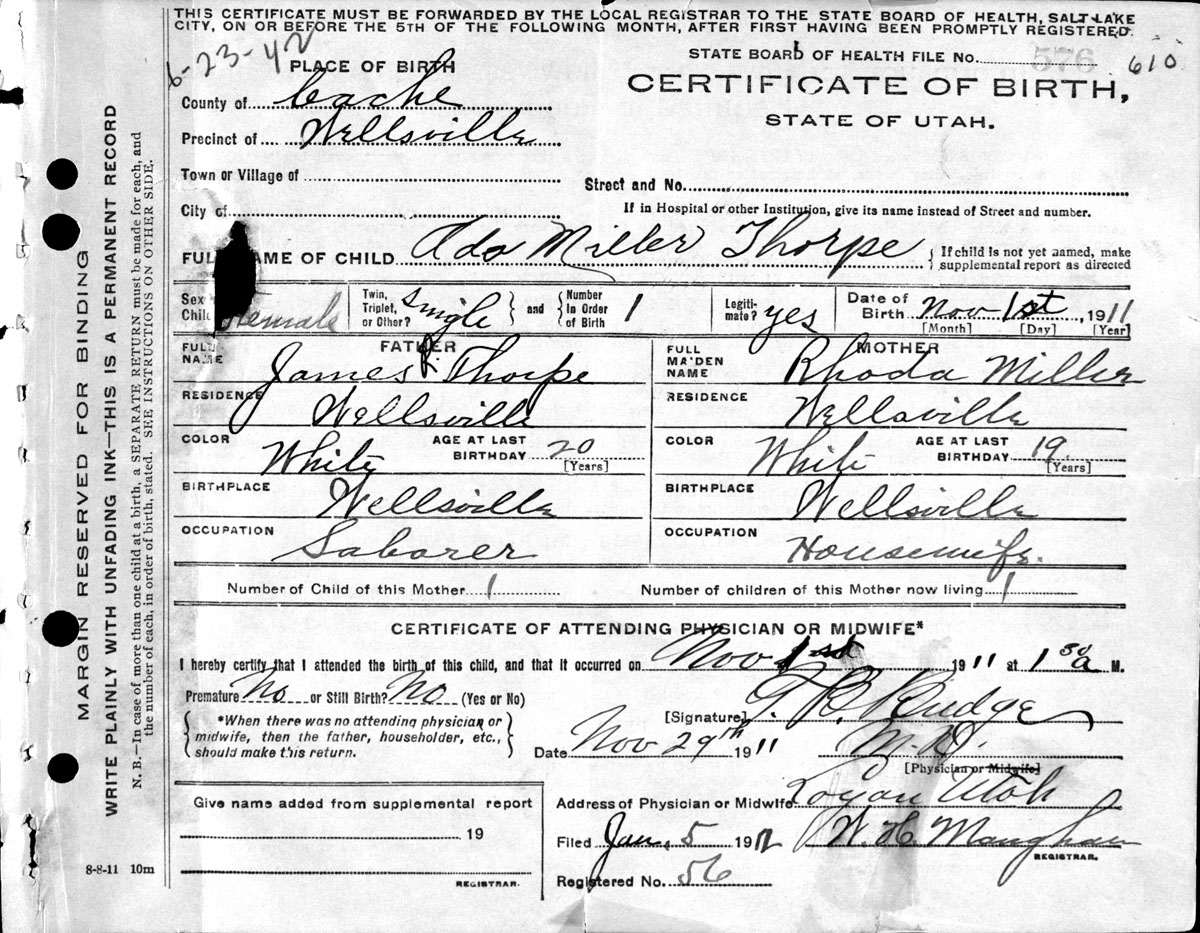 THIS CERTIFICATE MUST BE FORWARDED BY THE LOCAL REGISTRAR TO THE STATE BOARD OF HEALTH, SALT LAKE
CITY, ON OR BEFORE THE 5TH OF THE FOLLOWING MONTH, AFTER FIRST HAVING BEEN PROMPTLY REGISTERED.
6-23-42
STATE BOARD OF HEALTH FILE NO. 576 610
PLACE OF BIRTH
CERTIFICATE OF BIRTH,
STATE OF UTAH.
County of Cache
Precinct of Wellsville
Town or Village of
Street and No.
City of
If in Hospital or other Institution, give its name instead of Street and number.
FULL NAME OF CHILD Ada Miller Thorpe { If child is not yet named, make
supplemental report as directed
Sex Child Female
Twin, Triplet, or Other? Single } and { Number In Order of Birth 1
Legiti-mate? yes
Date of Birth Nov 1st, 1911
[Month] [Day] [Year]
FATHER
FULL NAME James R Thorpe
RESIDENCE Wellsville
COLOR White AGE AT LAST BIRTHDAY 20
[Years]
BIRTHPLACE Wellsville
OCCUPATION Laborer
MOTHER
FULL MAIDEN NAME Rhoda Miller
RESIDENCE Wellsville
COLOR White AGE AT LAST BIRTHDAY 19
[Years]
BIRTHPLACE Wellsville
OCCUPATION Housewife.
Number of Child of this Mother 1 Number of children of this Mother now living 1
CERTIFICATE OF ATTENDING PHYSICIAN OR MIDWIFE*
I hereby certify that I attended the birth of this child, and that it occurred on Nov 1st 1911 at 1 30 a M.
Premature? No or Still Birth? No (Yes or No)
{ *When there was no attending physician or
midwife, then the father, householder, etc.,
should make this return. }
[Signature] T. B. Budge
Date Nov 29th 1911 M.D.
[Physician or Midwife]
Address of Physician or Midwife Logan Utah
Filed Jan. 5 1912 W. H. Maughan
REGISTRAR.
Registered No. 56
Give name added from supplemental report
19
REGISTRAR.
8-8-11 10m
MARGIN RESERVED FOR BINDING
WRITE PLAINLY WITH UNFADING INK—THIS IS A PERMANENT RECORD
N. B.—In case of more than one child at a birth, a SEPARATE RETURN must be made for each, and
the number of each, in order of birth, stated. SEE INSTRUCTIONS ON OTHER SIDE.